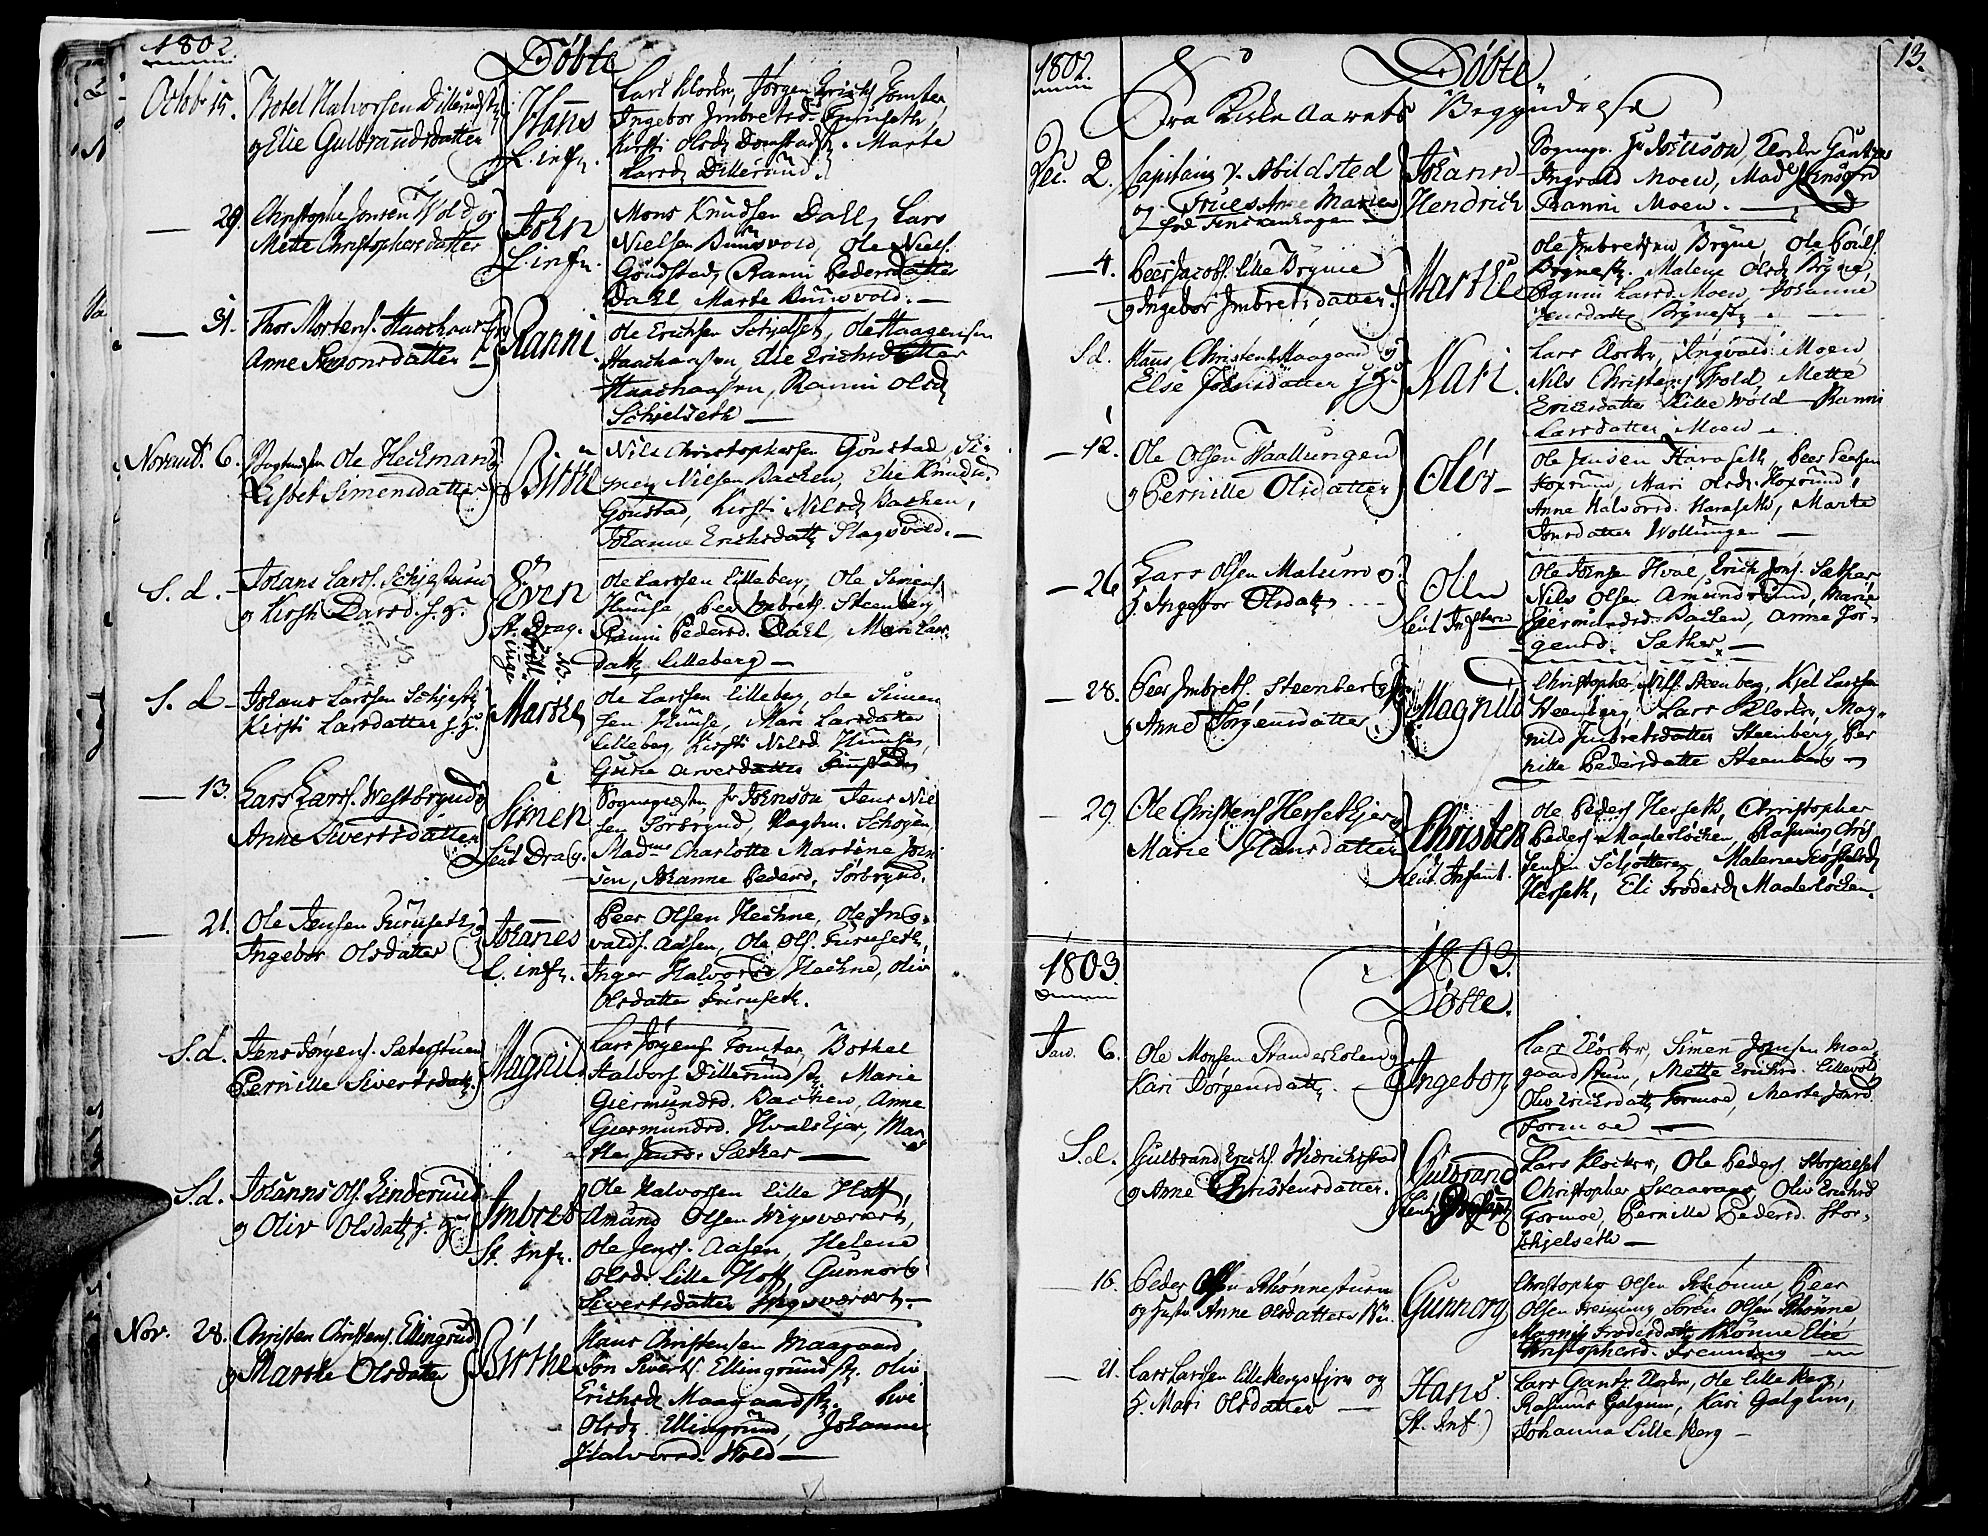 1802.
Döbte
Octobr 15. Botel Halvorsen Dillerudst
og Elie Gulbrandsdatter
Hans
L. infr.
Lars Klocker, Jörgen Erichs. Tomter,
Ingebor Imbretsd. Furuseth,
Kirsti Olsd. Marte
Larsd. Dillerud.
29. Christopher Jonsen Wold og
Mette Christophersdatter
John
L. infr.
Mons Knudsen Dahl, Lars
Nielsen Bunsvold, Ole Niels.
Goudstad, Ranni Pedersdatter
Dahl, Marte Bunsvold.
31. Thor Mortens.
Anne Simonsdatter
Ranni.
Ole Erichsen Schjelset, Ole Haagensen
Haachaasen, Elie Erichsdatter
Haachaasen, Ranni Olsd.
Schjelseth
Novemb. 6. Ole Heckman og
Lisbet Simensdatter
Birthe
Nils Christophersen Goustad, Si-
men Nielsen Backen, Elie Knudsd.
Goustad, Kirsti Nilsd. Backen,
Johanne Erichsdatt. Slagsvold.
S. d. Johans Lars.
og Kirsti Larsd. f. H.
Even
St. Drag.
NB
Tvillinger
Ole Larssen Lilleberg, Ole Simens.
Hunse, Peer Imbrets. Steenberg
Ranni Pedersd. Dahl, Mari Lars-
datt. Lilleberg
S. d. Johans Larssen
Kirsti Larsdatter f. H.
Marthe
Ole Larssen Lilleberg, Ole Simen
sen Hunse, Mari Larsdatter
Lilleberg, Kirsti Nilsd. Hunse,
Gurie
13. Lars Lars. Westbrynd og
Anne Sivertsdatter
Simen
Leut Drag.
Sognepresten Hr Johnson, Jens Niel
sen Sörbrynd,
Mad. Charlotte Martine John
sen, Johanne Pedersd. Sörbrynd.
21. Ole Jensen Furuseth
Ingebor Olsdatter
Johannes
L. infr.
Peer Olsen Hechne, Ole Ing-
valds. Aasen, Ole Ols. Furuseth,
Inger Halvorsd Hechne, Oliv
Olsdatter Furuseth.
S. d. Jens Jörgens. Sæterstuen
Pernille Sivertsdatt.
Magnil.
Lars Jörgens Tomter, Bothel
Halvors. Dillerudst. Marie
Giermundsd. Backen, Anne
Giermundsd. Hvalskjær, Mar
the Jensd. Sæther
S. d. Johannes Ols. Linderud
og Oliv Olsdatt. f. H.
Imbret
St. Infr.
Ole Halvorsen Lille Hoff,
Amund Olsen Wigsværet,
Ole Jens. Aasen, Helene
Olsd. Lille Hoff, Gunnor
Sivertsdatter Wigsværet.
Nov. 28. Christen Christens. Ellingsrud
og Marthe Olsdatter
Birthe
Hans Christensen Maagaard
Jon Siverts. Ellingrudst. Oliv
Erichsd. Maagaardst. Live
Olsd. Ellingrud, Johanne
Halvorsd. Wold
1802.
Döbte
13.
Fra Kirke Aarets Begyndelse
Dec. 2. Capitaine v. Abildsted
og Frue Anne Marie
född Finckenhagen
Johann
Hendrich
Sognepr. Hr Johnson, Klocker Gantz
Ingvald Moen, Made
Ranni Moen.
4. Peer Jacobs. Lille Bryne
og Ingebor Imbretsdatter
Marthe
Ole Imbretsen Bryne, Ole Pouls.
Brynest. Malene Olsd. Bryne,
Ranni Larsd. Moen, Johanne
Jensdatt. Brynest.
S d. Hans Christens. Maagaard og
Else Johnsdatter f. H.
Kari.
Lars Klocker, Ingvald Moen
Nils Christens Wold, Mette
Erichsdatter Lille Wold Ranni
Larsdatter Moen.
12. Ole Olsen Waallungen
og Pernille Olsdatter
Oliv
Ole Jensen Haraseth, Peer Pedersen
Hoxrun, Mari Olsd. Hoxrund,
Anne Halvorsd. Haraseth, Marte
Jonsdatter Wollungen
26. Lars Olsen Malum og
H. Ingebor Olsdatt.
Olen
Leut Infanterie
Ole Jonsen Hval, Erich Jons. Sæther
Nils Olsen Amundrud, Marie
Giermundsd. Backen, Anne Jör-
gensd. Sæther
28. Peer Imbrets. Steenberg
og Anne Jörgensdatter
Magnild
Christopher Nils. Steenberg, Kjel Larsen
Steenberg, Lars Klocker, Mag-
nild Imbretsdatter Steenberg, Per
nille Pedersdatter Steenberg
29. Ole Christens Hersethkjær
Marie Hansdatter
Christen
Leut. Infant.
Ole Peders Herseth, Christopher
Peders. Maalerlöcken, Rasmus Chris
tensen Schjotteren, Malene
Herseth, Eli Frodesd. Maalerlöcken.
1803
1803.
Döbte.
Jan. 6. Ole Monsen Standerholen og
Kari Jörgensdatt.
Ingebor
Lars Klocker, Simen Jonsen Maa-
gaardstuen, Mette Erichsd. Lillevold,
Oliv Erichsdatt. Formoe, Marte Joensd
Formoe
S. d. Gulbrand Erichs. Widrichstad
og Anne Christensdatter.
Gulbrand
Leut
Lars Klocker, Ole Peders Storskjelset
Christopher Skaaraas, Oliv Erichsd
Formoe, Pernille Pedersd. Stor-
skjelseth
16. Peder Olsen Schönnestuen
og Hustru Anne Olsdatter
Gunnorg
Christopher Olsen Schönne Peer
Olsen Freming, Sören Olsen Schönne
Magnil Frodesdatt. Schönne Elie
Christophersd. Freming
21. Lars Larssen Lille Bergskjern og
H. Mari Olsdatter
Hans
(St. Inf.)
Lars Gantz Klocker, Ole Lille Berg,
Rasmus Galguum, Kari Galguum,
Johanna Lille Berg